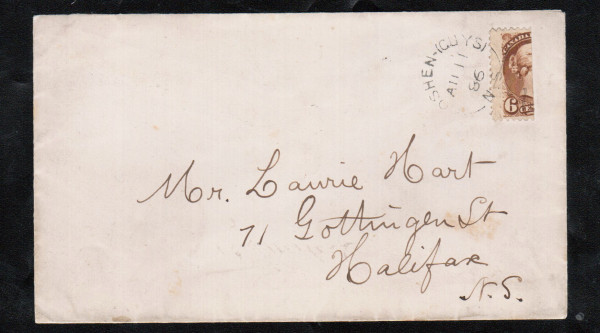 SHEN-(GUYS)
AU 11
86
N
CANADA
6
CEN
Mr. Laurie Hart
71 Gottingen St
Halifax
N.S.